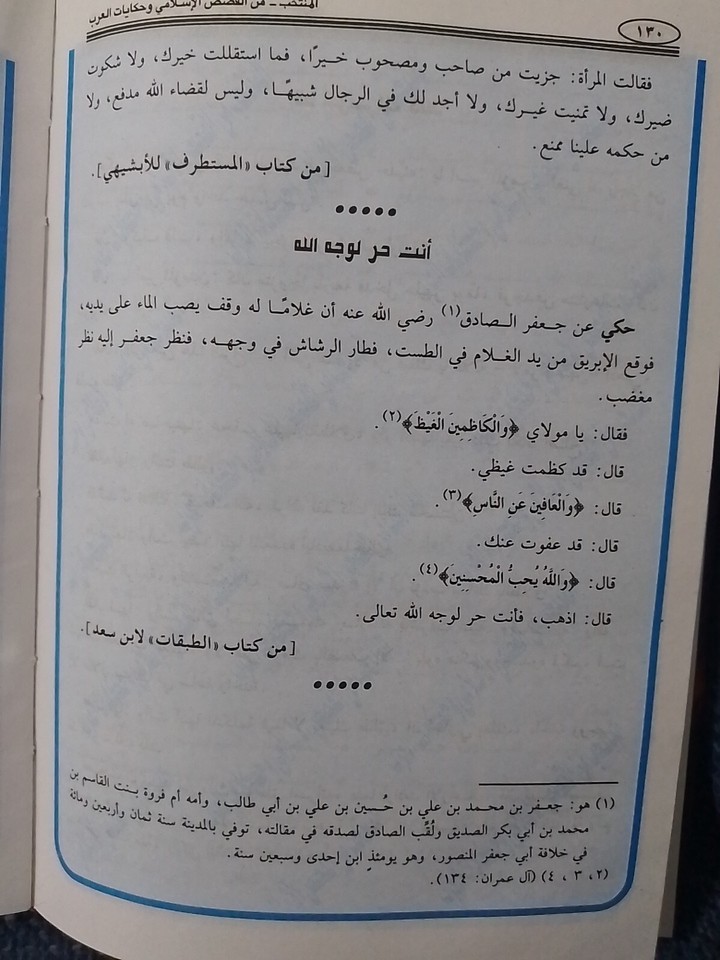 المنتخب - من القصص الإسلامي وحكايات العرب
١٣٠
فقالت المرأة: جزيت من صاحب ومصحوب خـيرًا، فما استقللت خيرك، ولا شكوت
ضيرك، ولا تمنيت غيـرك، ولا أجد لك في الرجال شبيهًـا، وليس لقضاء الله مدفع، ولا
من حكمه علينا ممنع.
[من كتاب «المستطرف» للأبشيهي].
•••••
أنت حر لوجه الله
حكي عن جـعفر الـصادق(١) رضي الله عنه أن غلامًـا له وقف يصب الماء على يديه،
فوقع الإبريق من يد الغـلام في الطست، فطار الرشاش في وجهـه، فنظر جعفـر إليه نظر
مغضب.
فقال: يا مولاي ﴿وَالْكَاظِمِينَ الْغَيْظَ﴾(٢).
قال: قد كظمت غيظي.
قال: ﴿وَالْعَافِينَ عَنِ النَّاسِ﴾(٣).
قال: قد عفوت عنك.
قال: ﴿وَاللَّهُ يُحِبُّ الْمُحْسِنِينَ﴾(٤).
قال: اذهب، فأنت حر لوجه الله تعالى.
[من كتاب «الطبقات» لابن سعد].
•••••
(١) هو: جعـفر بن محـمد بن علي بن حُـسين بن علي بن أبي طالب، وأمه أم فروة بـنت القاسم بن
محمد بن أبي بكر الصديق ولُقِّب الصادق لصدقه في مقالته، توفي بالمدينة سنة ثمان وأربعين ومائة
في خلافة أبي جعفر المنصور، وهو يومئذٍ ابن إحدى وسبعين سنة.
(٢، ٣ ، ٤) (آل عمران: ١٣٤).